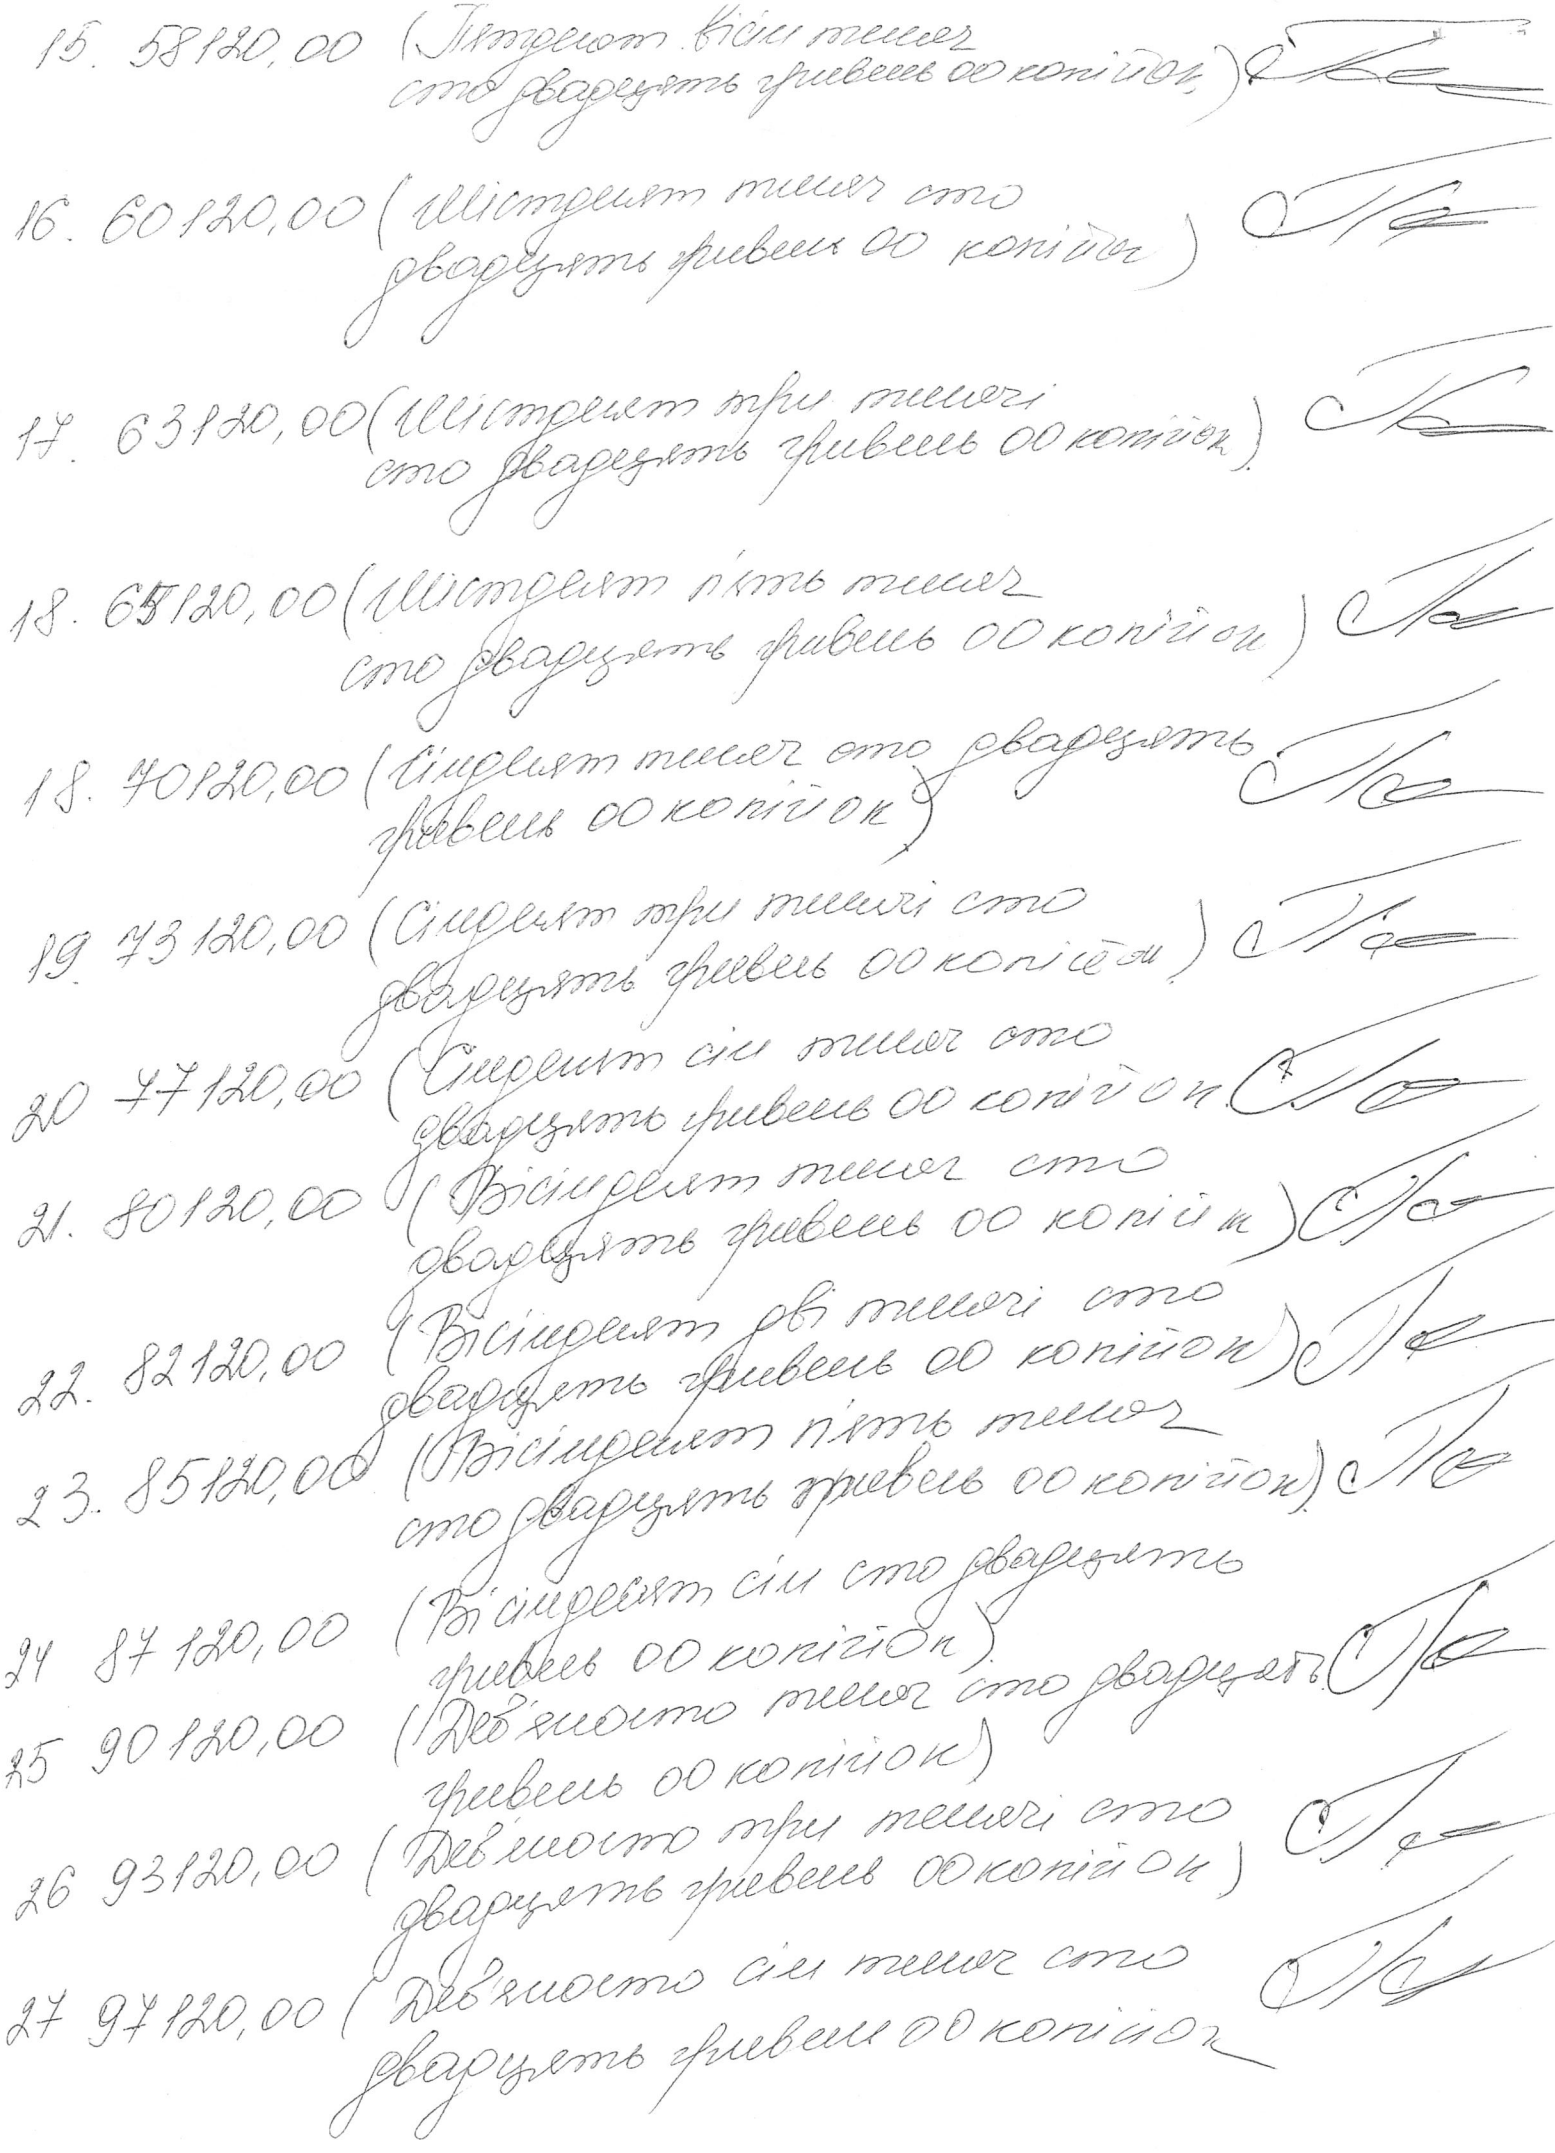 15. 58120,00 (Пятдесят вісім тисяч
сто двадцять гривень 00 копійок)
16. 60120,00 (Шістдесят тисяч сто
двадцять гривень 00 копійок)
17. 63120,00 (Шістдесят три тисячі
сто двадцять гривень 00 копійок)
18. 65120,00 (Шістдесят п'ять тисяч
сто двадцять гривень 00 копійок)
18. 70120,00 (Сімдесят тисяч сто двадцять
гривень 00 копійок)
19. 73120,00 (Сімдесят три тисячі сто
двадцять гривень 00 копійок)
20 77120,00 (Сімдесят сім тисяч сто
двадцять гривень 00 копійок
21. 80120,00 (Вісімдесят тисяч сто
двадцять гривень 00 копійок)
22. 82120,00 (Вісімдесят дві тисячі сто
двадцять гривень 00 копійок)
23. 85120,00 (Вісімдесят п'ять тисяч
сто двадцять гривень 00 копійок)
24 87120,00 (Вісімдесят сім сто двадцять
гривень 00 копійок)
25 90120,00 (Дев'яносто тисяч сто двадцать
гривень 00 копійок)
26 93120,00 (Дев'яносто три тисячі сто
двадцять гривень 00 копійок)
27 97120,00 (Дев'яносто сім тисяч сто
двадцять гривень 00 копійок